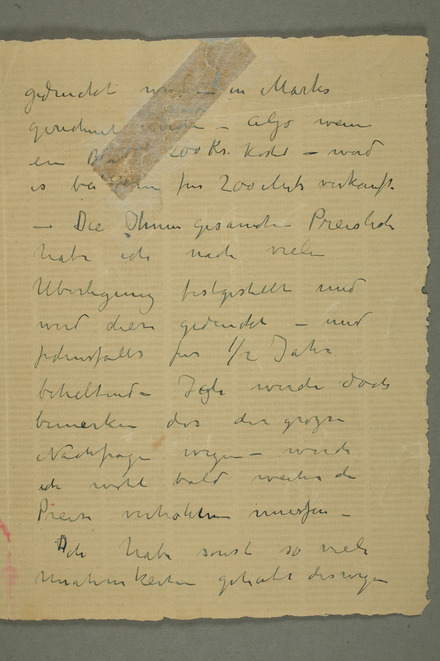 gedruckt wird – in Marks
gerechnet werden – also wenn
ein 200 Kr. kostet – wird
es bei für 200 Mk verkauft.
– Die Ihnen gesandte Preisliste
habe ich nach vieler
Überlegung festgestellt und
wird diese gedruckt – und
jedenfalls für 1/2 Jahr
– Ich werde doch
bemerken das der grossen
Nachfrage wegen – werde
ich wohl bald wieder die
Preise müssen –
Ich habe sonst so viele
gehabt deswegen